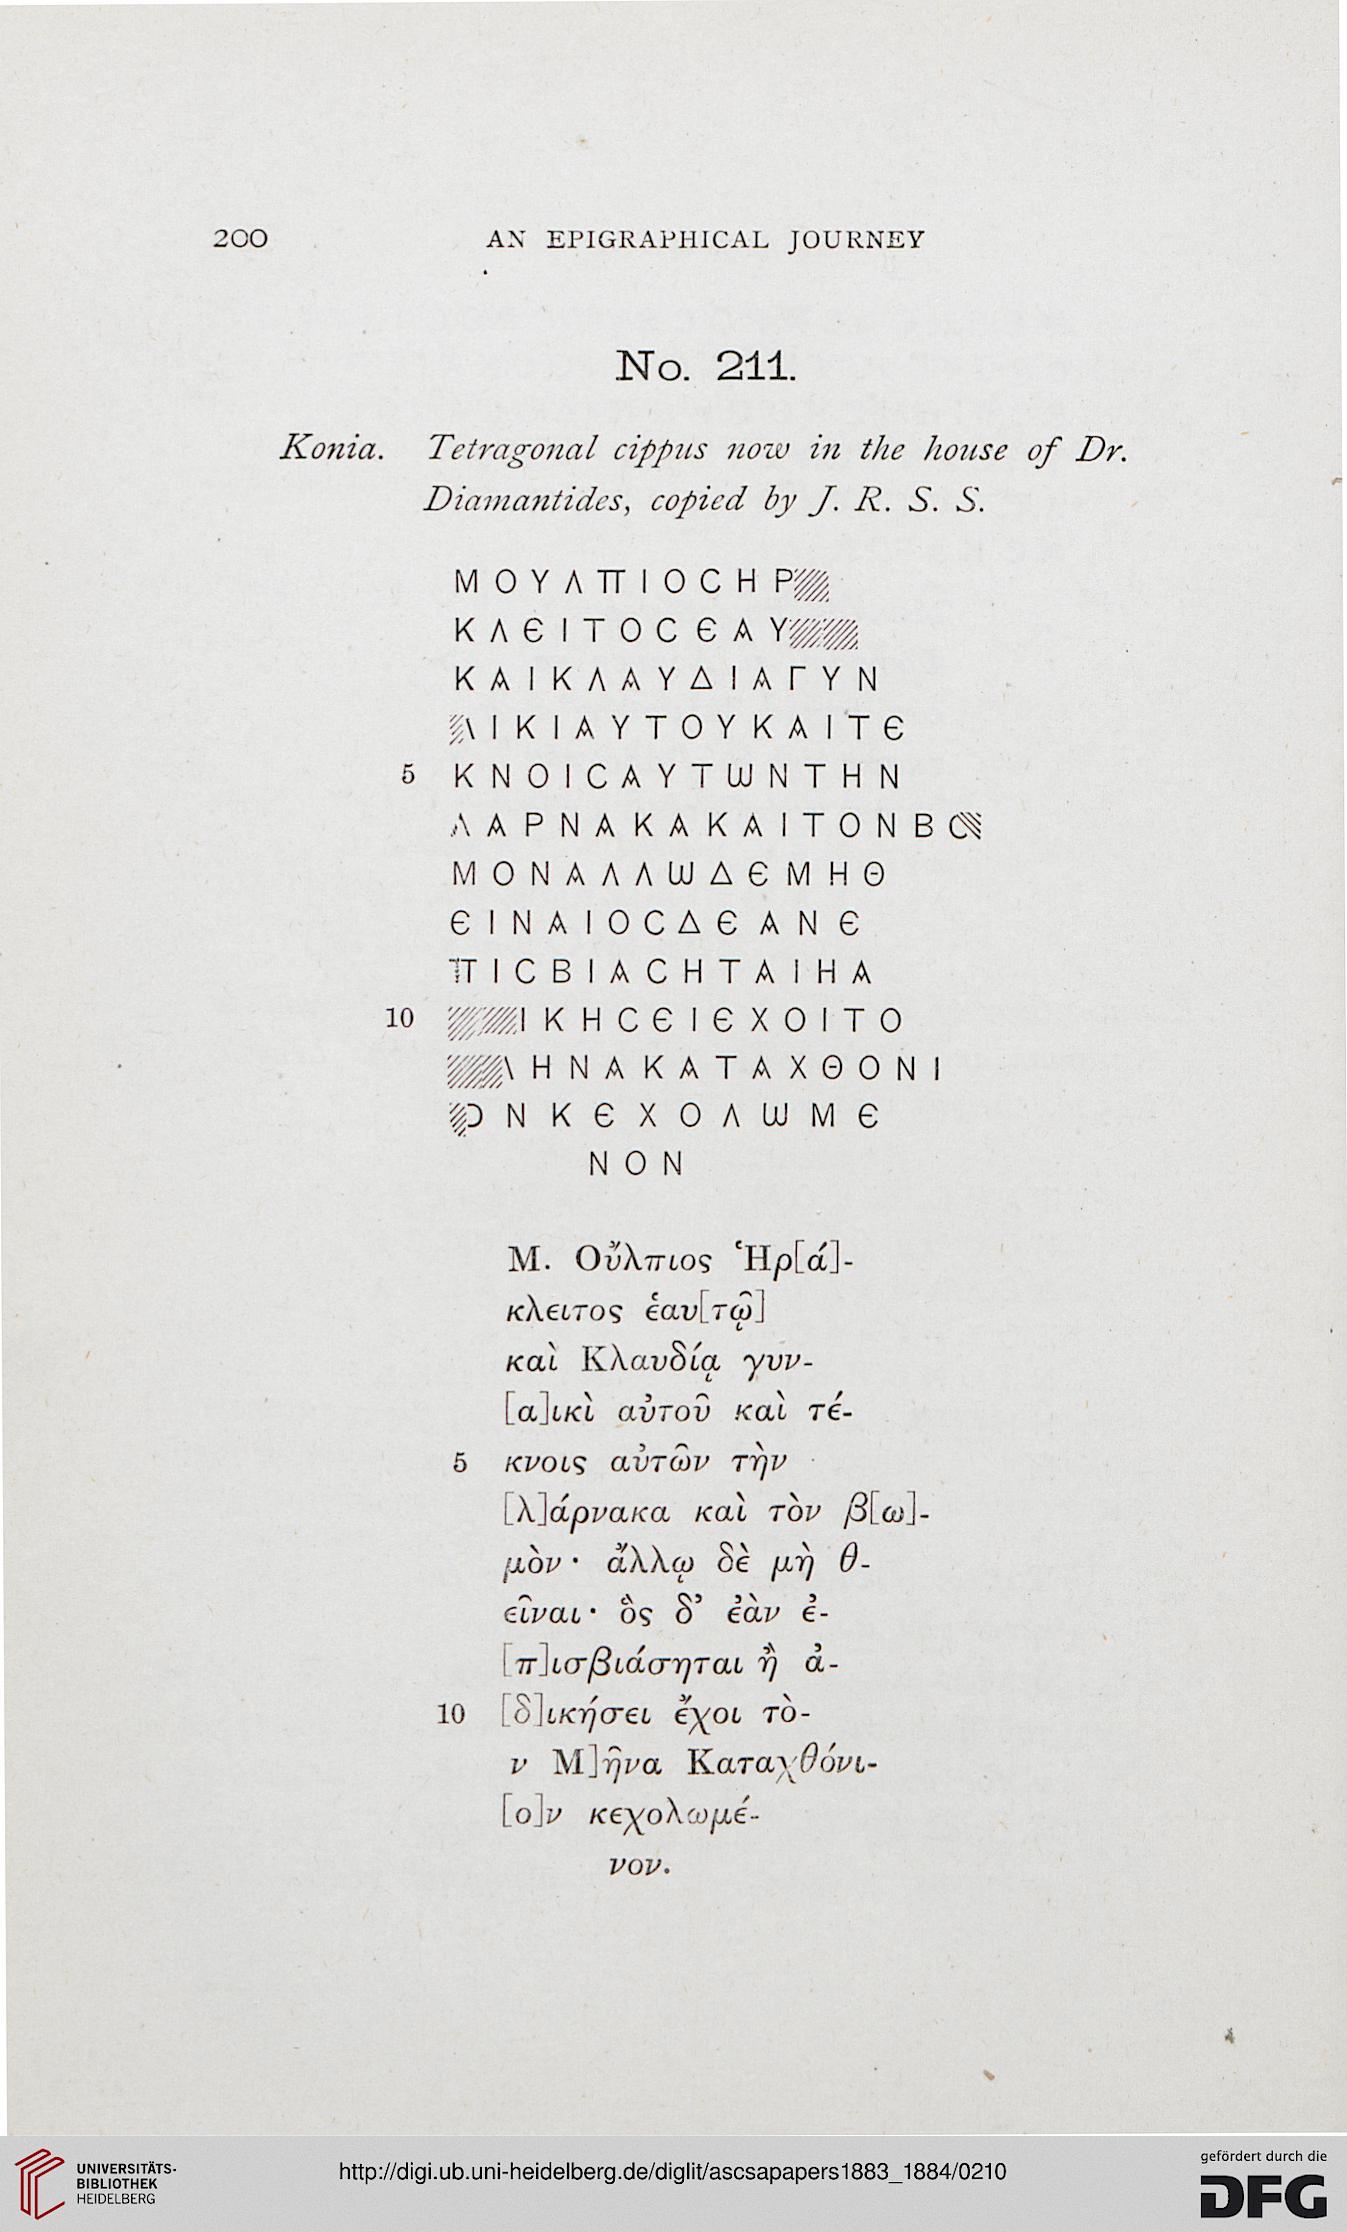 200 AN EPIGRAPHICAL JOURNEY
No. 211.
Konia. Tetragonal cippus now in the house of Dr.
Diamantides, copied by J. R. S. S.
ΜΟΥΛΠΙΟϹΗΡ
ΚΛЄΙΤΟϹЄΑΥ
ΚΑΙΚΛΑΥΔΙΑΓΥΝ
ΑΙΚΙΑΥΤΟΥΚΑΙΤЄ
5 ΚΝΟΙϹΑΥΤωΝΤΗΝ
ΛΑΡΝΑΚΑΚΑΙΤΟΝΒϹ
ΜΟΝΑΛΛωΔЄΜΗΘ
ЄΙΝΑΙΟϹΔЄΑΝЄ
ΠΙϹΒΙΑϹΗΤΑΙΗΑ
10 ΙΚΗϹЄΙЄΧΟΙΤΟ
\ΗΝΑΚΑΤΑΧΘΟΝΙ
ΟΝΚЄΧΟΛωΜЄ
ΝΟΝ
Μ. Οὔλπιος Ἡρ[ά]-
κλειτος ἑαυ[τῷ]
καὶ Κλαυδίᾳ γυν-
[α]ικὶ αὐτοῦ καὶ τέ-
5 κνοις αὐτῶν τὴν
[λ]άρνακα καὶ τὸν β[ω]-
μὸν· ἄλλῳ δὲ μὴ θ-
εῖναι· ὃς δ’ ἐὰν ἐ-
[π]ισβιάσηται ἢ ἀ-
10 [δ]ικήσει ἔχοι τὸ-
ν Μ]ῆνα Καταχθόνι-
[ο]ν κεχολωμέ-
νον.
UNIVERSITÄTS-
BIBLIOTHEK
HEIDELBERG
http://digi.ub.uni-heidelberg.de/diglit/ascsapapers1883_1884/0210
gefördert durch die
DFG